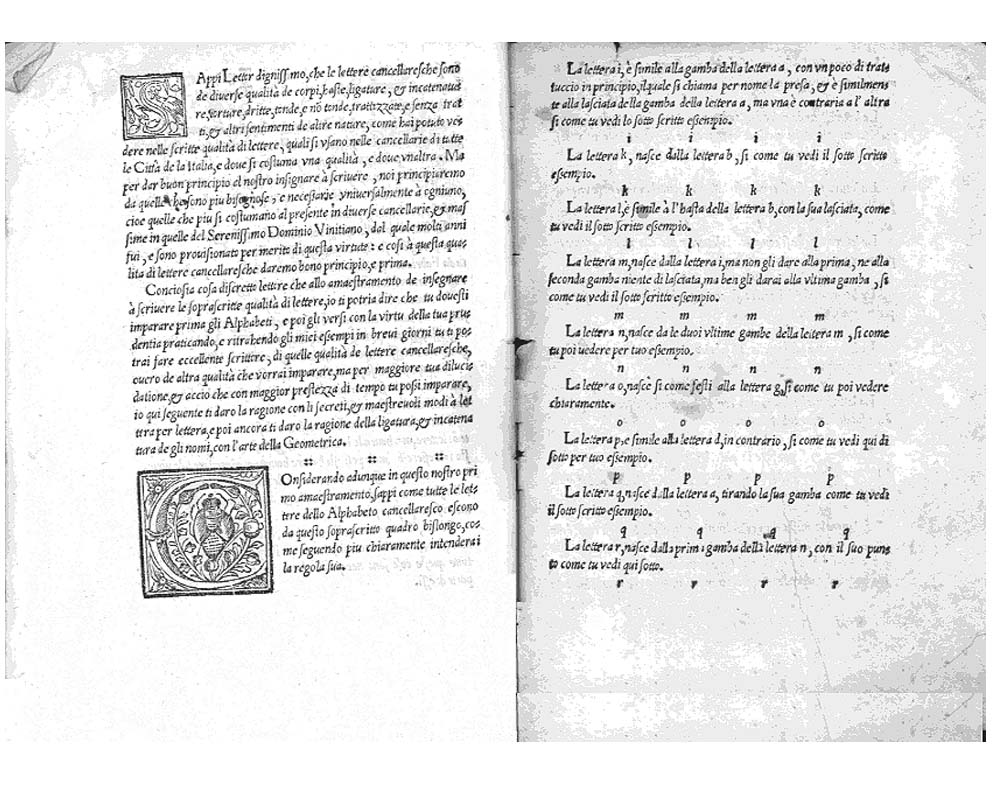 SAppi Letter dignissimo, che le lettere cancellaresche sono
de diverse qualità de corpi, haste, ligature, & incatenatu=
re, torture, dritte, tonde, e nō tonde, trattizzate, e senza trat
ti, & altri sentimenti de altre nature, come hai potuto ve=
dere nelle scritte qualità di lettere, quali si vsano nelle cancellarie di tutte
le Città de la Italia, e doue si costuma vna qualità, e doue vnaltra. Ma
per dar buon principio al nostro insignare à scriuere, noi principiaremo
da quelle che sono piu bisognose, e necessarie vniuersalmente à ogniuno,
cioe quelle che piu si costumano al presente in diuerse cancellarie, & mas
sime in quelle del Serenissimo Dominio Vinitiano, dal quale molti anni
fui, e sono prouisionato per merito di questa virtute: e cosi à questa qua=
lita di lettere cancellaresche daremo bono principio, e prima.
Conciosia cosa discretto lettore che allo amaestramento de insegnare
à scriuere le soprascritte qualità di lettere, io ti potria dire che tu douesti
imparare prima gli Alphabeti, e poi gli versi con la virtu della tua pru
dentia praticando, e ritrahendo gli miei essempi in breui giorni tu ti pos
trai fare eccellente scrittore, di quelle qualità de lettere cancellaresche,
ouero de altra qualità che vorrai imparare, ma per maggiore tua dilucia
datione, & acciò che con maggior prestezza di tempo tu possi imparare,
io qui seguente ti daro la ragione con li secreti, & maestreuoli modi à let
tera per lettera, e poi ancora ti daro la ragione della ligatura, & incatena
tura de gli nomi, con l'arte della Geometrica.
COnsiderando adunque in questo nostro pri
mo amaestramento, sappi come tutte le let=
tere dello Alphabeto cancellaresco escono
da questo soprascritto quadro bislongo, co=
me seguendo piu chiaramente intenderai
la regola sua.
La lettera i, è simile alla gamba della lettera a, con vn poco di trat=
tuccio in principio, il quale si chiama per nome la presa, & è similmen=
te alla lasciata della gamba della lettera a, ma vna è contraria a l'altra
si come tu vedi lo sotto scritto essempio.
i i i i
La lettera k, nasce dalla lettera b, si come tu vedi il sotto scritto
essempio.
k k k k
La lettera l, è simile à l'hasta della lettera b, con la sua lasciata, come
tu vedi il sotto scritto essempio.
l l l l
La lettera m, nasce dalla lettera i, ma non gli dare alla prima, ne alla
seconda gamba niente di lasciata, ma ben gli darai alla vltima gamba, si
come tu vedi il sotto scritto essempio.
m m m m
La lettera n, nasce da le duoi vltime gambe della lettera m, si come
tu poi uedere per tuo essempio.
n n n n
La lettera o, nasce si come festi alla lettera g, si come tu poi vedere
chiaramente.
o o o o
La lettera p, e simile alla lettera d, in contrario, si come tu vedi qui di
sotto per tuo essempio.
p p p p
La lettera q, nasce dalla lettera a, tirando la sua gamba come tu vedi
il sotto scritto essempio.
q q q q
La lettera r, nasce dalla prima gamba della lettera n, con il suo pun=
to come tu vedi qui sotto.
r r r r